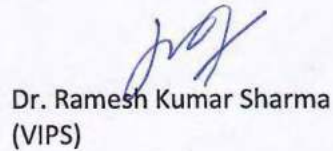 Dr. Ramesh Kumar Sharma
(VIPS)